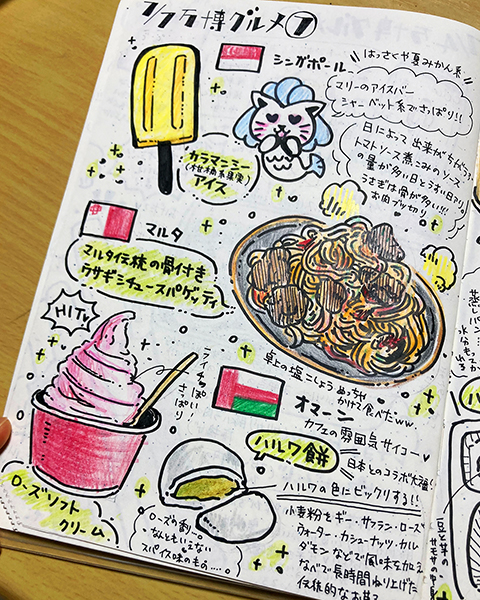 7/7万博グルメ⑦
シンガポール
はっさくや夏みかん系
マリーのアイスバー
シャーベット系でさっぱり!!
カラマンシー
アイス
日によって出来がちがう
トマトソース煮こみのソース
の量が多い日とうすい日アリ。
うさぎは骨が多い!!!
お肉ブツ切り
マルタ
マルタ伝統の骨付き
ウサギシチュースパゲッティ
HIT!
ライチっぽい!
さっぱり
ローズソフト
クリーム
卓上の塩こしょうめっちゃ
かけて食べたww.
オマーン
カフェの雰囲気サイコー
ハルワ餅
日本とのコラボ大福!
ハルワの色にビックリする!!
小麦粉をギー・サフラン・ローズ
ウォーター・カシューナッツ・カル
ダモンなどで風味を加え
なべで長時間ねり上げた
伝統的なお菓子
ローズの香り。
なんともいえない
スパイス味のもの....
豆と芋の
サモサの中身